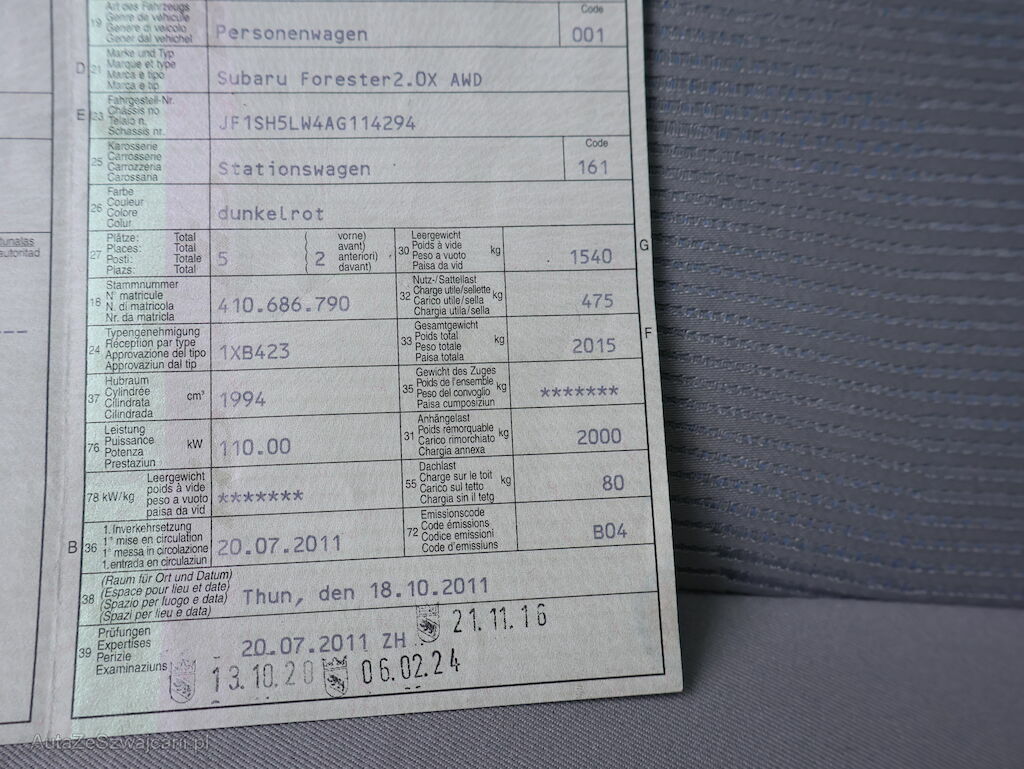 19 Art des Fahrzeugs
Genre de véhicule
Genere di veicolo
Gener dal vehichel
Personenwagen
Code
001
D 21 Marke und Typ
Marque et type
Marca e tipo
Marca e tip
Subaru Forester2.0X AWD
E 23 Fahrgestell-Nr.
Châssis no
Telaio n.
Schassis nr.
JF1SH5LW4AG114294
25 Karosserie
Carrosserie
Carrozzeria
Carossaria
Stationswagen
Code
161
26 Farbe
Couleur
Colore
Colur
dunkelrot
27 Plätze: Total
Places: Total
Posti: Totale
Plazs: Total
5
vorne)
avant)
anteriori)
davant)
2
30 Leergewicht
Poids à vide
Peso a vuoto
Paisa da vid
kg
1540
G
18 Stammnummer
N° matricule
N. di matricola
Nr. da matricla
410.686.790
32 Nutz-/Sattellast
Charge utile/sellette
Carico utile/sella
Chargia utila/sella
kg
475
24 Typengenehmigung
Réception par type
Approvazione del tipo
Approvaziun dal tip
1XB423
33 Gesamtgewicht
Poids total
Peso totale
Paisa totala
kg
2015
F
37 Hubraum
Cylindrée
Cilindrata
Cilindrada
cm³
1994
35 Gewicht des Zuges
Poids de l'ensemble
Peso del convoglio
Paisa cumposiziun
kg
*******
76 Leistung
Puissance
Potenza
Prestaziun
kW
110.00
31 Anhängelast
Poids remorquable
Carico rimorchiato
Chargia annexa
kg
2000
78 kW/kg
Leergewicht
poids à vide
peso a vuoto
paisa da vid
*******
55 Dachlast
Charge sur le toit
Carico sul tetto
Chargia sin il tetg
kg
80
B 36 1. Inverkehrsetzung
1° mise en circulation
1° messa in circolazione
1. entrada en circulaziun
20.07.2011
72 Emissionscode
Code émissions
Codice emissioni
Code d'emissiuns
B04
38 (Raum für Ort und Datum)
(Espace pour lieu et date)
(Spazio per luogo e data)
(Spazi per lieu e data)
Thun, den 18.10.2011
39 Prüfungen
Expertises
Perizie
Examinaziuns
20.07.2011 ZH
21.11.16
13.10.20
06.02.24
AutaZeSzwajcarii.pl